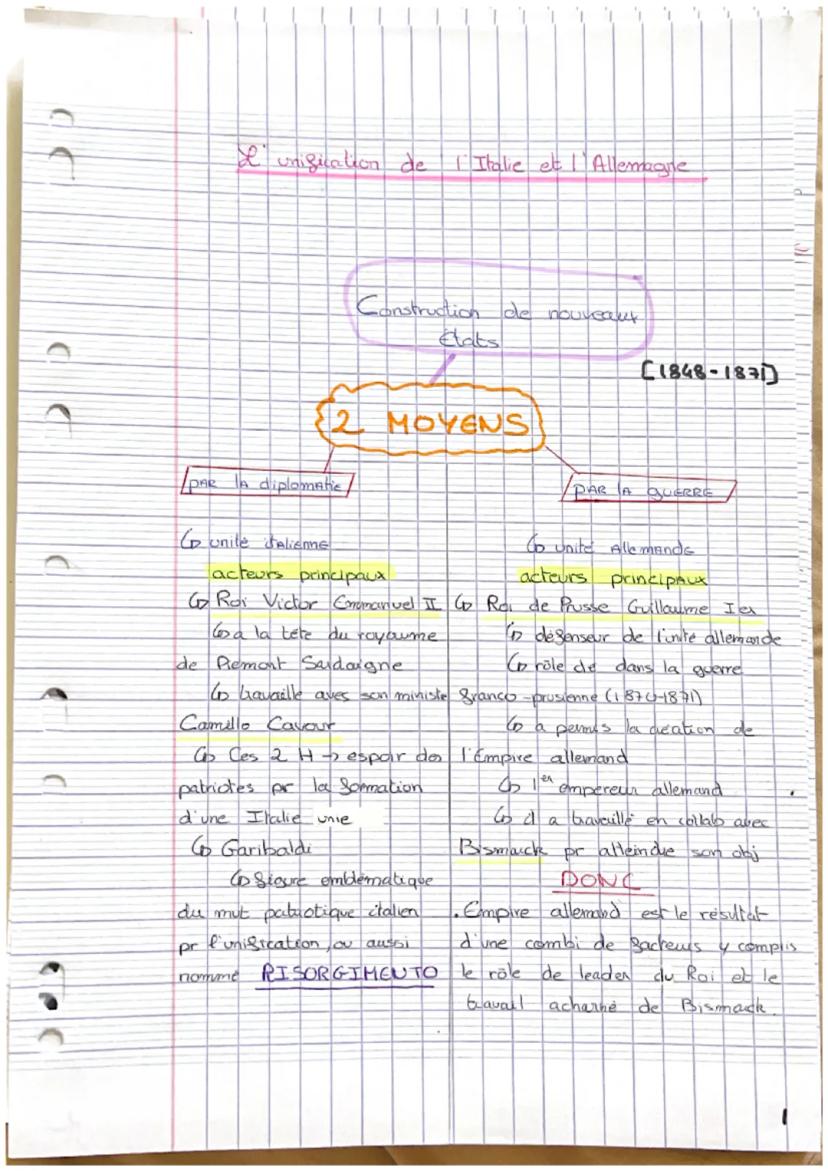 L'unification de l'Italie et l'Allemagne
Construction de nouveaux
États
[1848-1871]
2 MOYENS
PAR LA diplomatie
↳ unité italienne
acteurs principaux
↳ Roi Victor Emmanuel II
↳ a la tête du royaume
de Piemont Sardaigne
↳ travaille avec son ministe
Camillo Cavour
↳ Ces 2 H → espoir des
patriotes pr la formation
d'une Italie unie
↳ Garibaldi
↳ figure emblématique
du mvt patriotique italien
pr l'unification, ou aussi
nommé RISORGIMENTO
PAR LA GUERRE
↳ unité Allemande
acteurs principaux
↳ Roi de Prusse Guillaume Ier
↳ défenseur de l'unité allemande
↳ rôle clé dans la guerre
franco-prusienne (1870-1871)
↳ a permis la création de
l'Empire allemand
↳ 1er empereur allemand
↳ Il a travaillé en collab avec
Bismarck pr atteindre son obj
DONC
. Empire allemand est le résultat
d'une combi de facteurs y compris
le rôle de leader du Roi et le
travail acharné de Bismack.
1